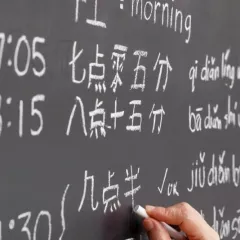 : morning
7:05 七点零五分 qī diǎn líng
8:15 八点十五分 bā diǎn shí
:30 { 几点半 √ok jiǔ diǎn